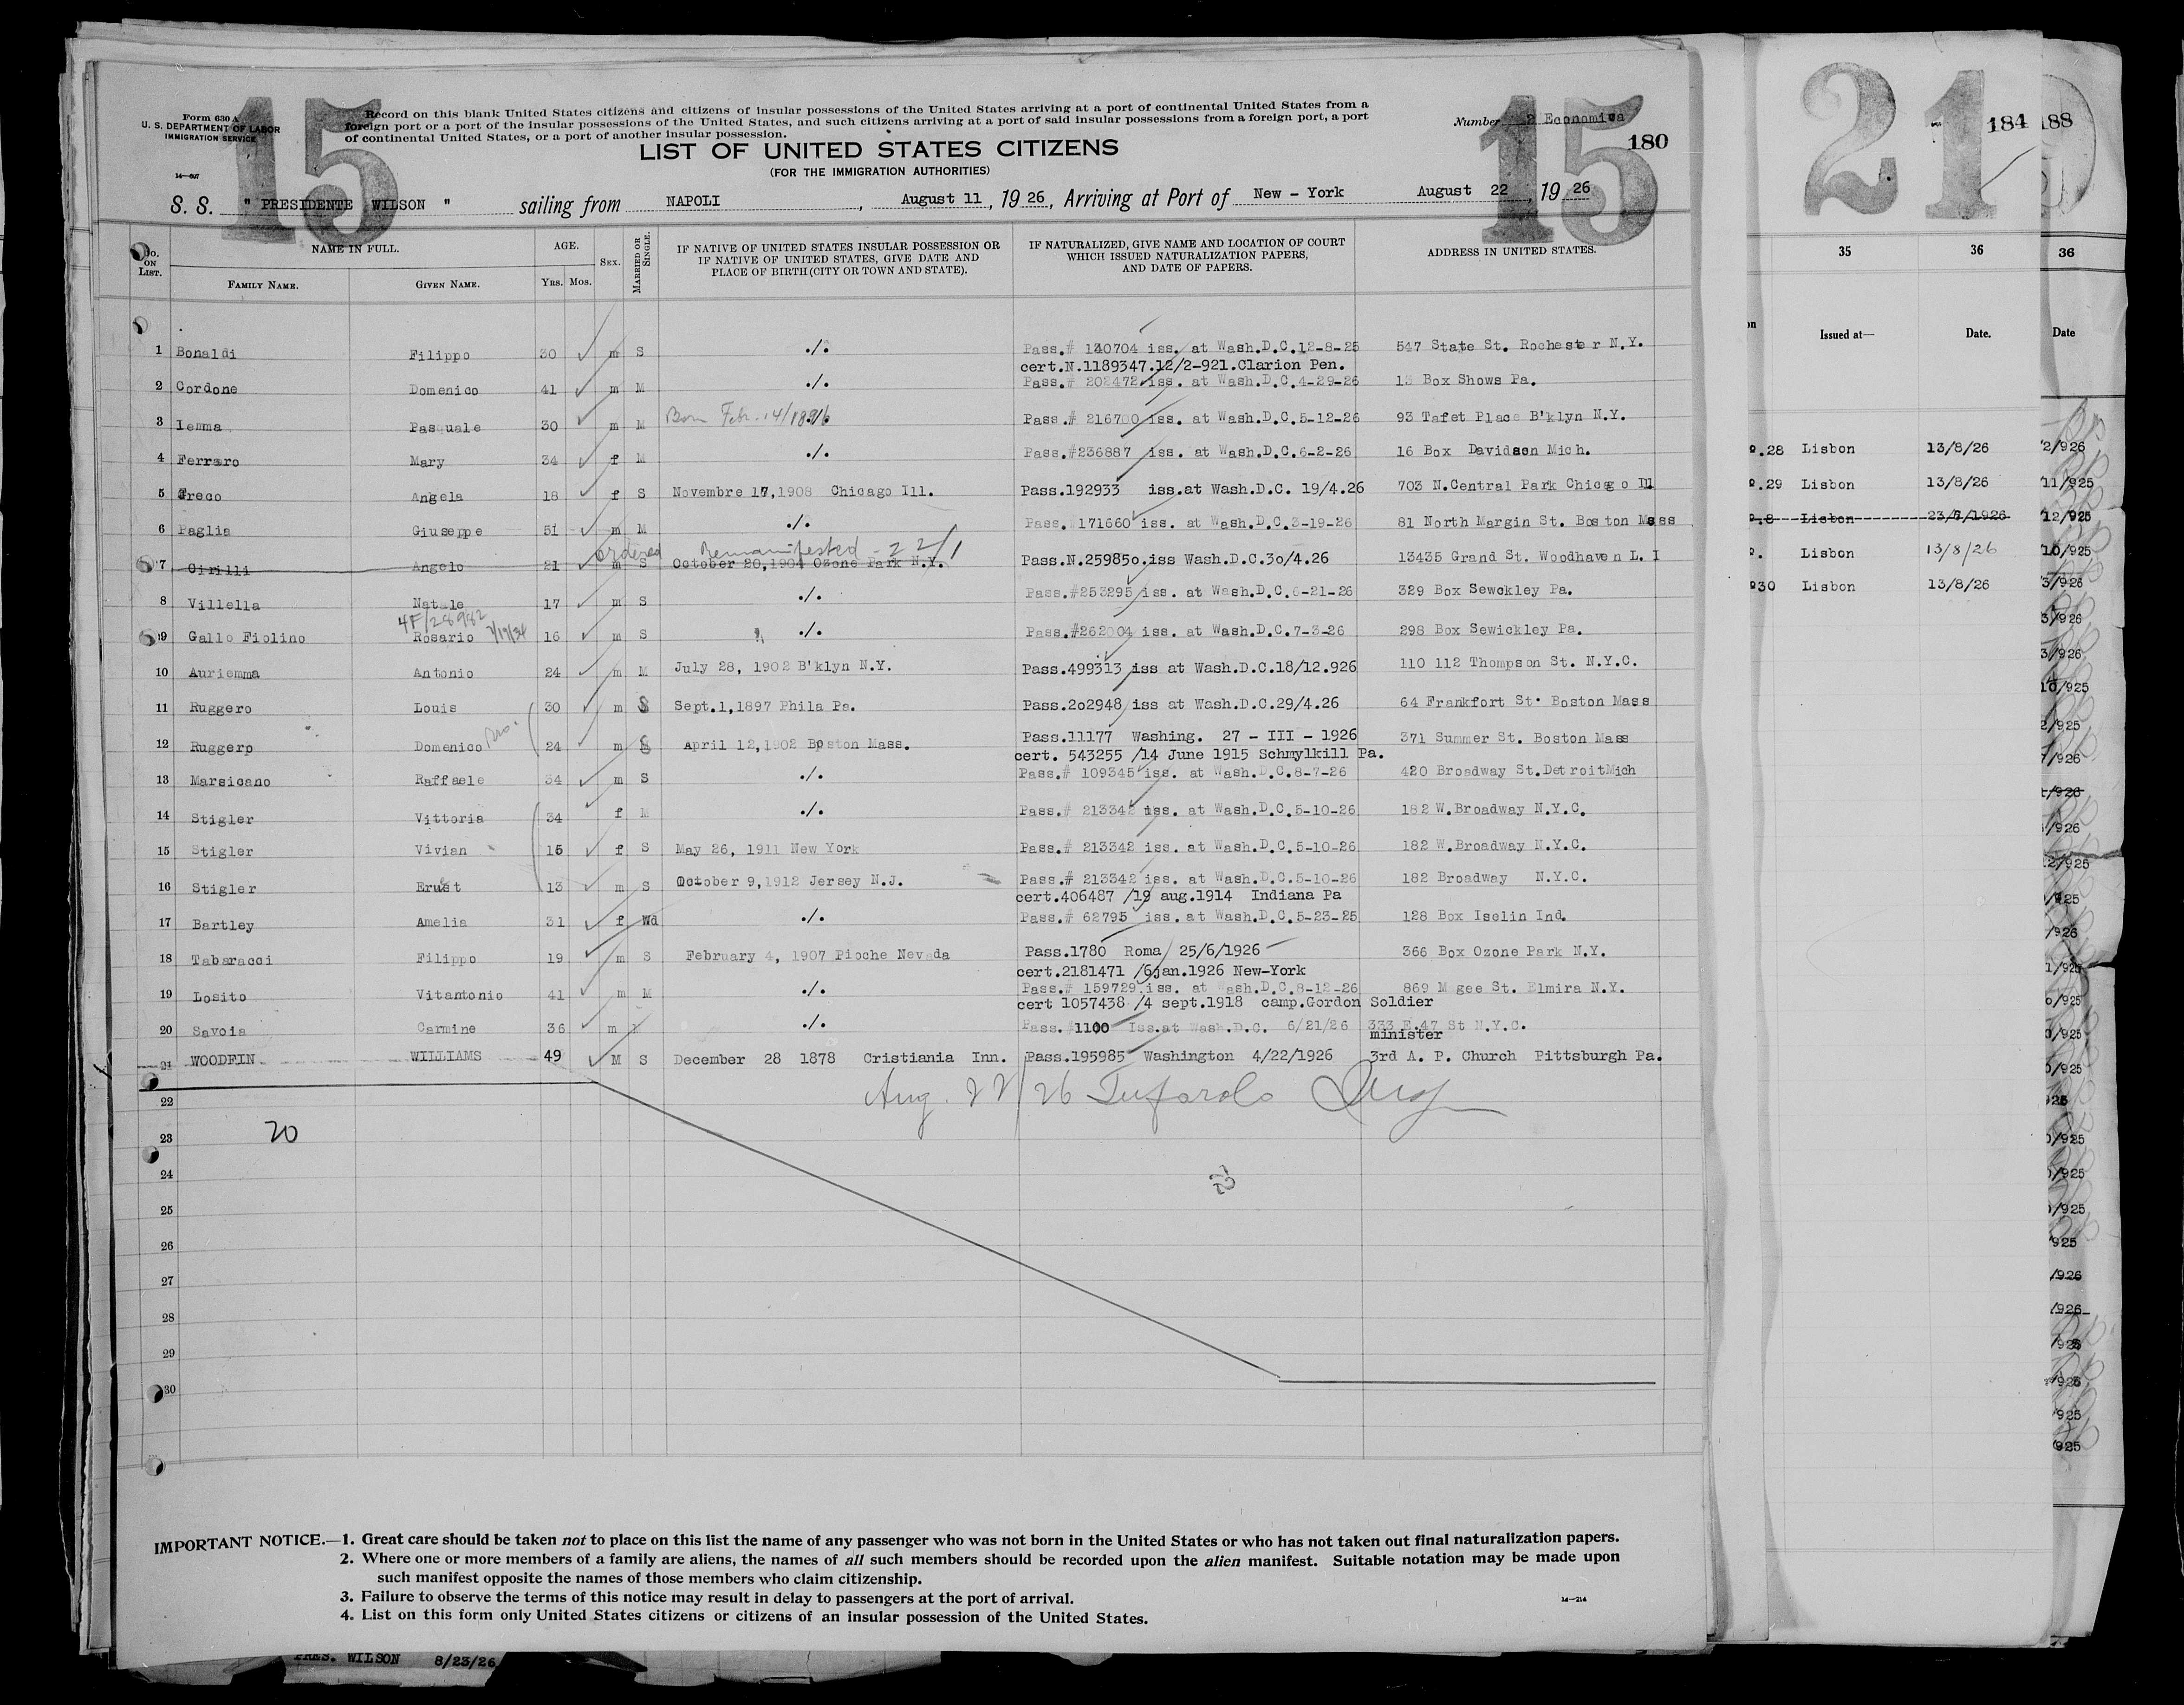 15
15
21
Form 630 A
U. S. DEPARTMENT OF LABOR
IMMIGRATION SERVICE
14—607
Record on this blank United States citizens and citizens of insular possessions of the United States arriving at a port of continental United States from a
foreign port or a port of the insular possessions of the United States, and such citizens arriving at a port of said insular possessions from a foreign port, a port
of continental United States, or a port of another insular possession.
Number 2 Economica
180
184
188
LIST OF UNITED STATES CITIZENS
(FOR THE IMMIGRATION AUTHORITIES)
S. S. " PRESIDENTE WILSON " sailing from NAPOLI, August 11, 1926, Arriving at Port of New - York August 22, 1926
No. ON LIST.
NAME IN FULL.
FAMILY NAME.
GIVEN NAME.
AGE.
Yrs. Mos.
SEX.
MARRIED OR SINGLE.
IF NATIVE OF UNITED STATES INSULAR POSSESSION OR
IF NATIVE OF UNITED STATES, GIVE DATE AND
PLACE OF BIRTH (CITY OR TOWN AND STATE).
IF NATURALIZED, GIVE NAME AND LOCATION OF COURT
WHICH ISSUED NATURALIZATION PAPERS,
AND DATE OF PAPERS.
ADDRESS IN UNITED STATES.
1 Bonaldi Filippo 30 m S ./. Pass.# 130704 iss. at Wash.D.C.12-8-25 547 State St. Rochester N.Y.
cert.N.1189347.12/2-921.Clarion Pen.
2 Cordone Domenico 41 m M ./. Pass.# 202472 iss. at Wash.D.C.4-29-26 13 Box Shows Pa.
3 Iemma Pasquale 30 m M Born Febr. 14/1896 Pass.# 216700 iss. at Wash.D.C.5-12-26 93 Tafet Place B'klyn N.Y.
4 Ferraro Mary 34 f M ./. Pass.#236887 iss. at Wash.D.C.6-2-26 16 Box Davidson Mich.
5 Greco Angela 18 f S Novembre 17,1908 Chicago Ill. Pass.192933 iss.at Wash.D.C. 19/4.26 703 N.Central Park Chicago Ill
6 Paglia Giuseppe 51 m M ./. Pass. #171660 iss. at Wash.D.C.3-19-26 81 North Margin St. Boston Mass
ordered Remanifested - 22/1
7 Cirilli Angelo 21 m S October 20,1904 Ozone Park N.Y. Pass.N.259850.iss Wash.D.C.30/4.26 13435 Grand St. Woodhaven L. I
8 Villella Natale 17 m S ./. Pass.#253295 iss. at Wash.D.C.6-21-26 329 Box Sewckley Pa.
4F/28982 7/19/34
9 Gallo Fiolino Rosario 16 m S ./. Pass.#262004 iss. at Wash.D.C.7-3-26 298 Box Sewickley Pa.
10 Auriemma Antonio 24 m M July 28, 1902 B'klyn N.Y. Pass.499313 iss at Wash.D.C.18/12.926 110 112 Thompson St. N.Y.C.
11 Ruggero Louis 30 m S Sept.1,1897 Phila Pa. Pass.202948 iss at Wash.D.C.29/4.26 64 Frankfort St. Boston Mass
12 Ruggero Domenico 24 m S April 12,1902 Boston Mass. Pass.11177 Washing. 27 - III - 1926 371 Summer St. Boston Mass
cert. 543255 /14 June 1915 Schmylkill Pa.
13 Marsicano Raffaele 34 m S ./. Pass.# 109345 iss. at Wash.D.C.8-7-26 420 Broadway St.DetroitMich
14 Stigler Vittoria 34 f M ./. Pass.# 213342 iss. at Wash.D.C.5-10-26 182 W.Broadway N.Y.C.
15 Stigler Vivian 15 f S May 26, 1911 New York Pass.# 213342 iss. at Wash.D.C.5-10-26 182 W.Broadway N.Y.C.
16 Stigler Ernst 13 m S October 9,1912 Jersey N.J. Pass.# 213342 iss. at Wash.D.C.5-10-26 182 Broadway N.Y.C.
cert.406487 /19 aug.1914 Indiana Pa
17 Bartley Amelia 31 f Wd ./. Pass.# 62795 iss. at Wash.D.C.5-23-25 128 Box Iselin Ind.
18 Tabaracci Filippo 19 m S February 4, 1907 Pioche Nevada Pass.1780 Roma 25/6/1926 366 Box Ozone Park N.Y.
cert.2181471 /6jan.1926 New-York
19 Losito Vitantonio 41 m M ./. Pass.# 159729 iss. at Wash.D.C.8-12-26 869 M gee St. Elmira N.Y.
cert 1057438 /4 sept.1918 camp.Gordon Soldier
20 Savoia Carmine 36 m ./. Pass.#1100 Iss.at Wash.D.C. 6/21/26 333 E.47 St N.Y.C.
minister
21 WOODFIN WILLIAMS 49 M S December 28 1878 Cristiania Inn. Pass.195985 Washington 4/22/1926 3rd A. P. Church Pittsburgh Pa.
Aug. 22/26
22
23
20
24
25
26
27
28
29
30
IMPORTANT NOTICE.—1. Great care should be taken not to place on this list the name of any passenger who was not born in the United States or who has not taken out final naturalization papers.
2. Where one or more members of a family are aliens, the names of all such members should be recorded upon the alien manifest. Suitable notation may be made upon
such manifest opposite the names of those members who claim citizenship.
3. Failure to observe the terms of this notice may result in delay to passengers at the port of arrival.
4. List on this form only United States citizens or citizens of an insular possession of the United States.
14—214
PRES. WILSON 8/23/26
35 36 36
Issued at— Date. Date
.28 Lisbon 13/8/26 2/926
.29 Lisbon 13/8/26 11/925
.8 Lisbon 23/6/1926 12/925
Lisbon 13/8/26 10/925
30 Lisbon 13/8/26 3/926